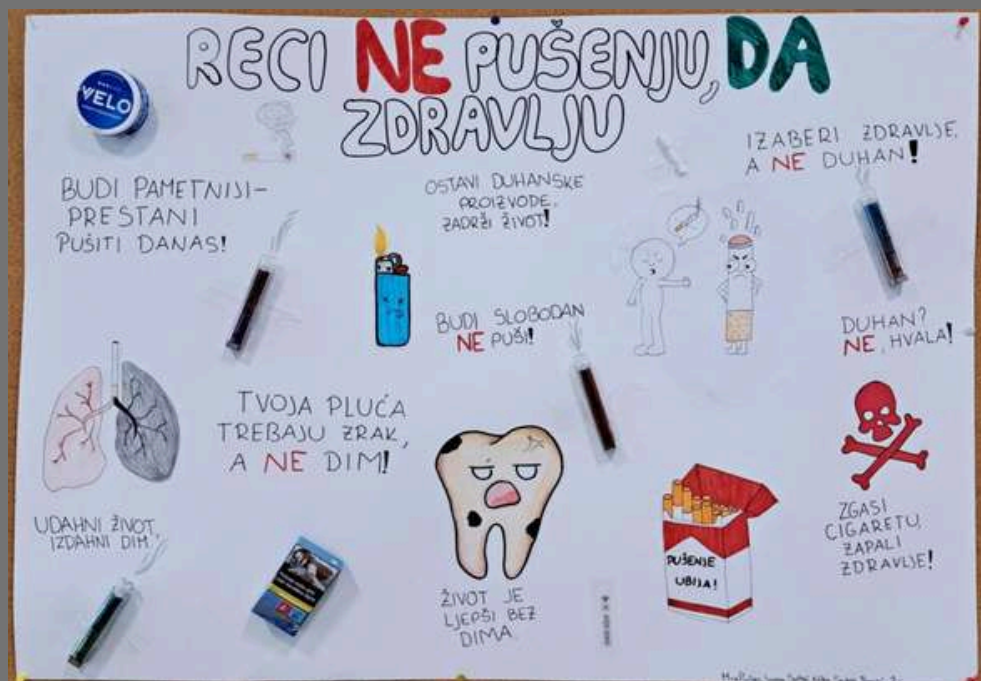 RECI NE PUŠENJU, DA
ZDRAVLJU
VELO
IZABERI ZDRAVLJE,
A NE DUHAN!
BUDI PAMETNIJI-
PRESTANI
PUŠITI DANAS!
OSTAVI DUHANSKE
PROIZVODE,
ZADRŽI ŽIVOT!
BUDI SLOBODAN
NE PUŠI!
DUHAN?
NE, HVALA!
TVOJA PLUĆA
TREBAJU ZRAK,
A NE DIM!
UDAHNI ŽIVOT,
IZDAHNI DIM.
ŽIVOT JE
LJEPŠI BEZ
DIMA
PUŠENJE
UBIJA!
ZGASI
CIGARETU,
ZAPALI
ZDRAVLJE!